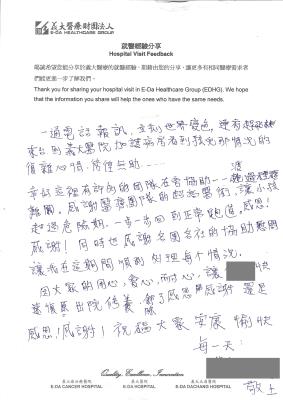 義大醫療財團法人
E-DA HEALTHCARE GROUP
就醫經驗分享
Hospital Visit Feedback
竭誠希望您能分享於義大醫療的就醫經驗，期藉由您的分享，讓更多有相同醫療需求者
們能更進一步了解我們。
Thank you for sharing your hospital visit in E-Da Healthcare Group (EDHG). We hope
that the information you share will help the ones who have the same needs.
一通電話報訊，立刻世界變色，還有
來台到義大醫院加護病房看到孩兒那情況的
複雜心情，徬徨無助……
幸好這裡有所有的團隊在旁協助……渡過
難關，感謝醫療團隊的起死醫術，讓小孩
起過危險期，一步一步回到正常跑道，感恩！
感謝！同時也感謝各團各社的協助幫助
讓我在這期間順利處理每個情況。
因大家的用心，會心，耐心，讓 快
速復原出院休養，除了感恩 感謝 還是
感恩，感謝！祝福大家安康 愉快
每一天！
敬上
Quality, Excellence, Innovation
義大癌治療醫院
E-DA CANCER HOSPITAL
義大醫院
E-DA HOSPITAL
義大大昌醫院
E-DA DACHANG HOSPITAL